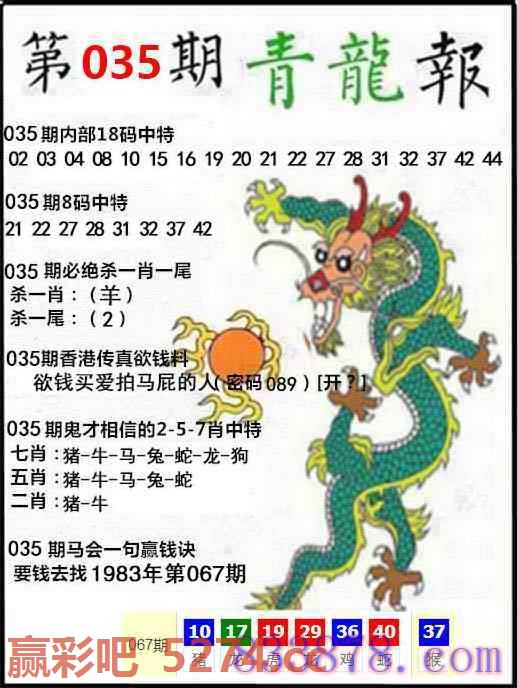 第035期 青龍報
035期内部18码中特
02 03 04 08 10 15 16 19 20 21 22 27 28 31 32 37 42 44
035期8码中特
21 22 27 28 31 32 37 42
035 期必绝杀一肖一尾
杀一肖：（羊）
杀一尾：（2）
035期香港传真欲钱料
欲钱买爱拍马屁的人（密码 089）[开？]
035 期鬼才相信的2-5-7肖中特
七肖：猪-牛-马-兔-蛇-龙-狗
五肖：猪-牛-马-兔-蛇
二肖：猪-牛
035 期马会一句赢钱诀
要钱去找1983年第067期
067期 10 17 19 29 36 40 37
猪 龙 虎 鸡 蛇 猴
赢彩吧